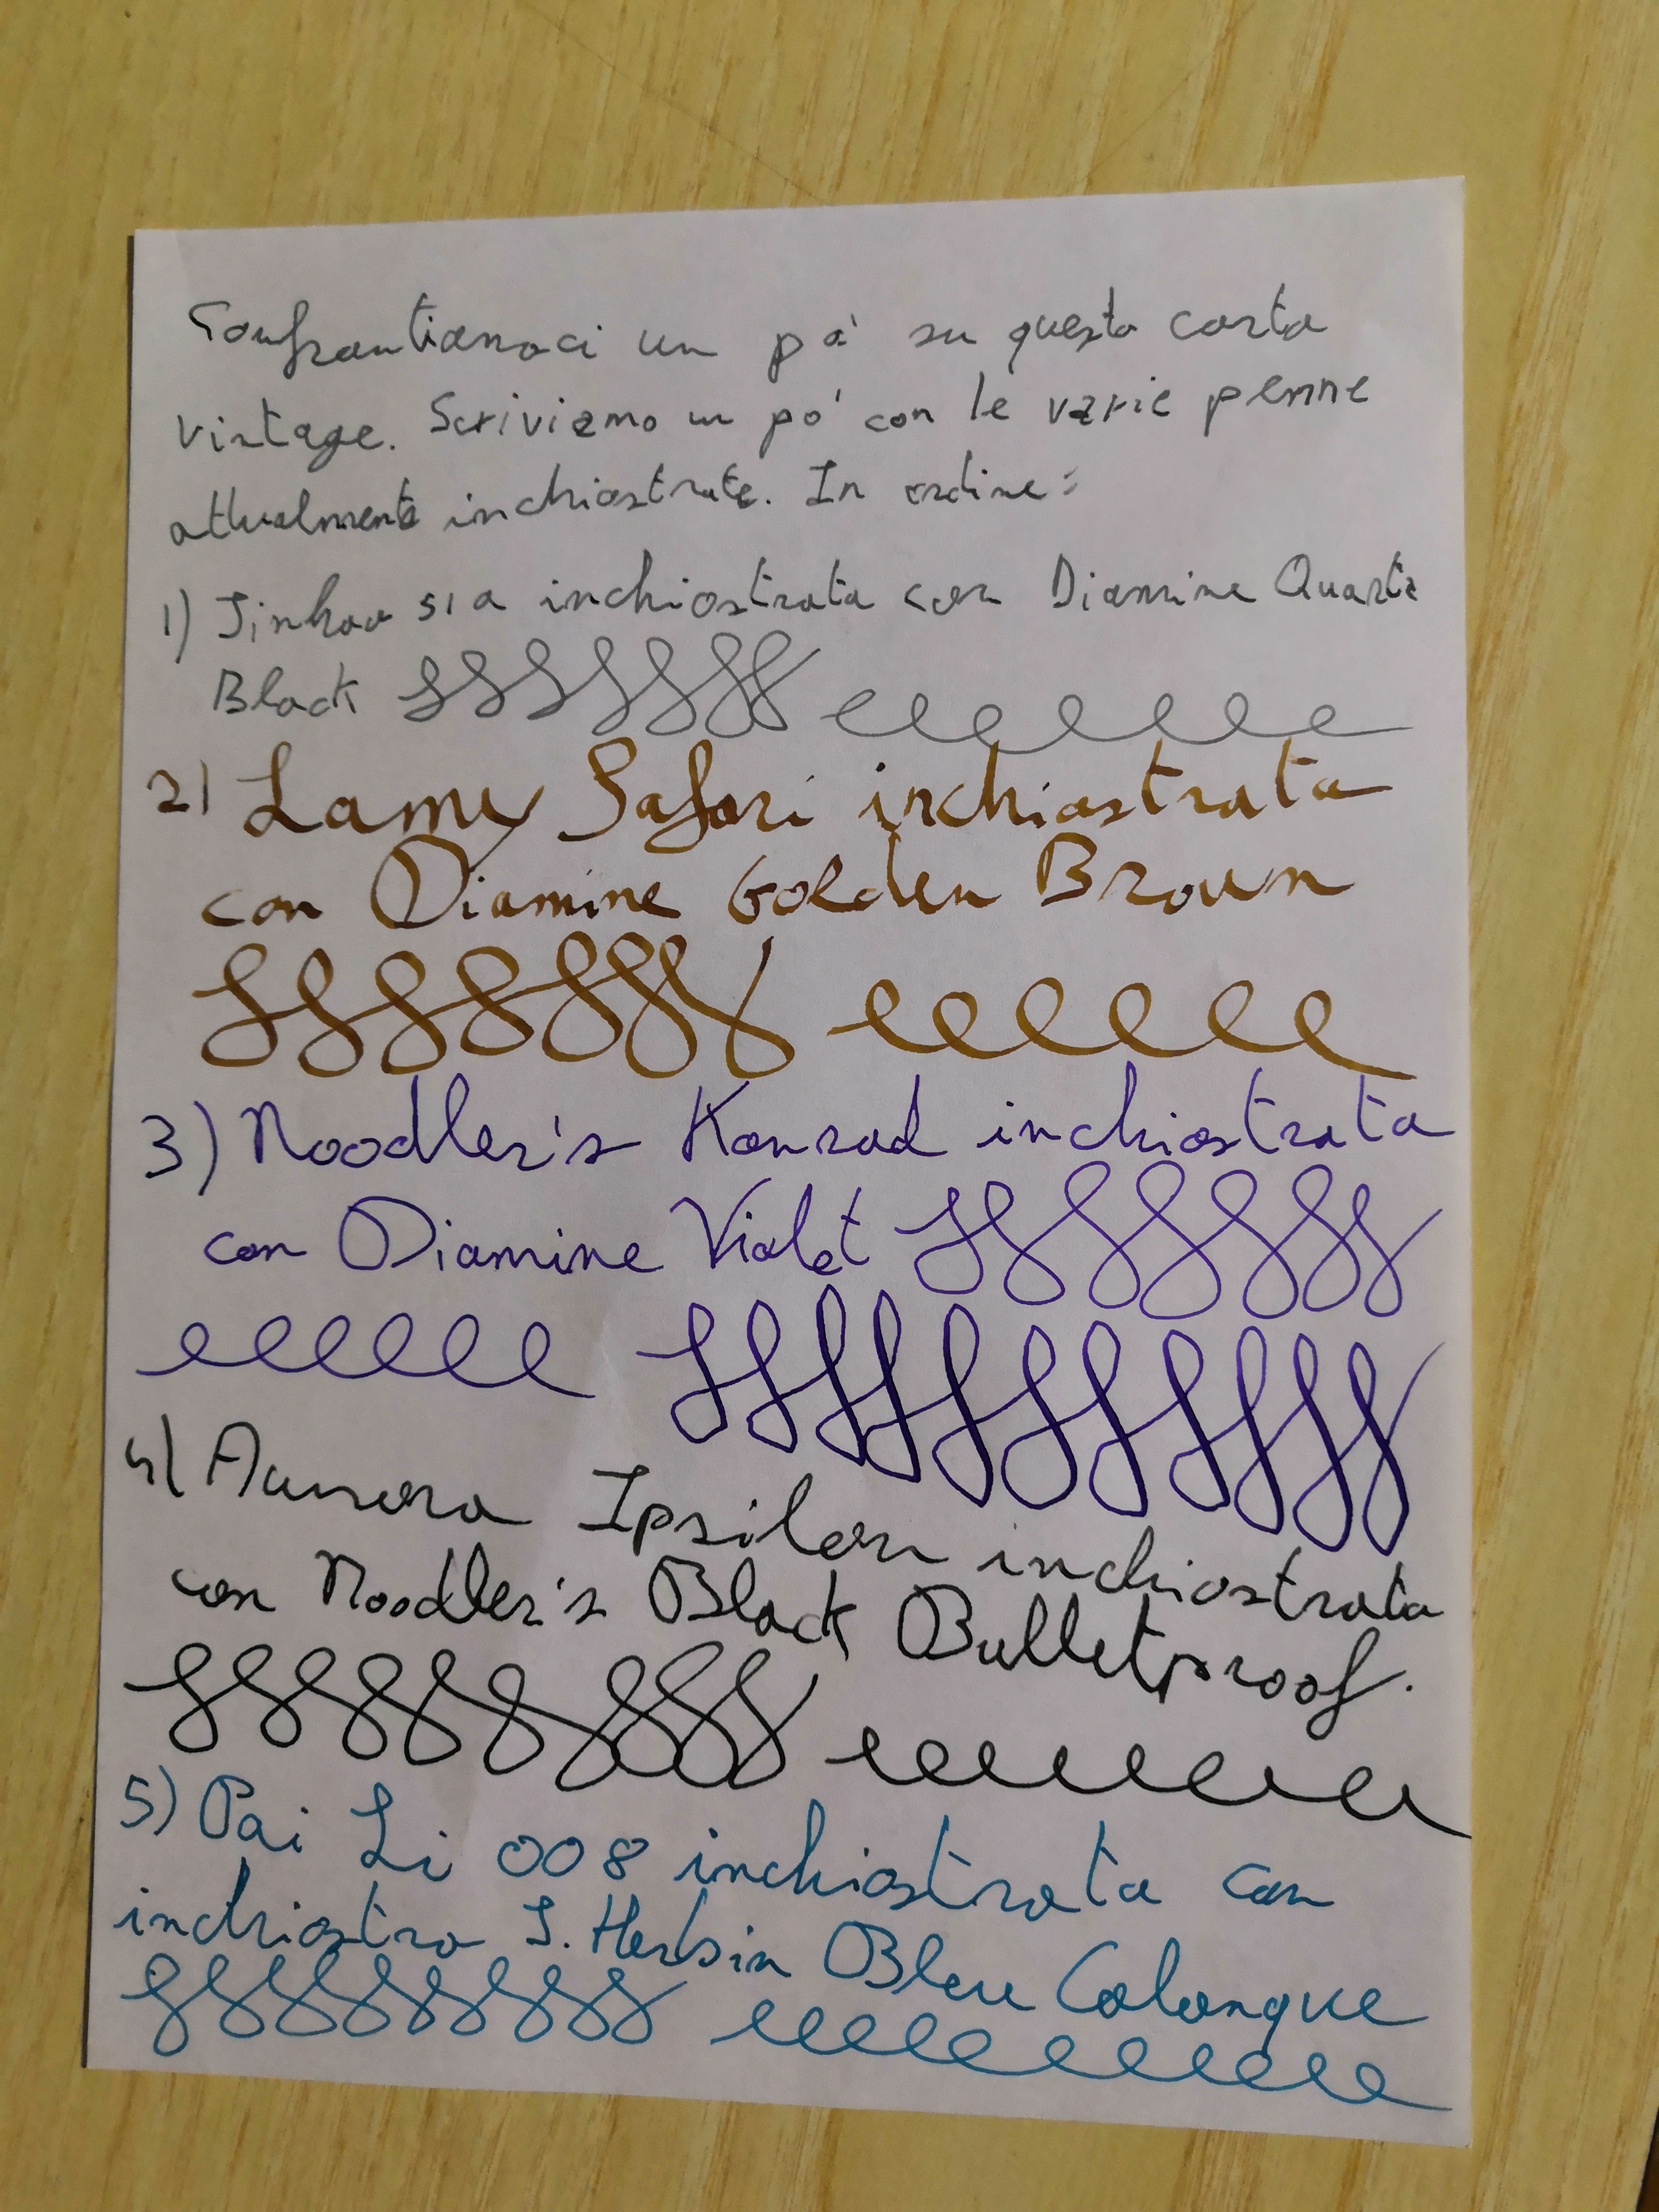 Confrontiamoci un pò su questa carta
vintage. Scriviamo un pò con le varie penne
attualmente inchiostrate. In ordine:
1) Jinhao 51a inchiostrata con Diamine Quartz
Black
2) Lamy Safari inchiostrata
con Diamine Golden Brown
3) Noodler's Konrad inchiostrata
con Diamine Violet
4) Aurora Ipsilon inchiostrata
con Noodler's Black Bulletproof.
5) Pai Li 008 inchiostrata con
inchiostro J. Herbin Bleu Calanque